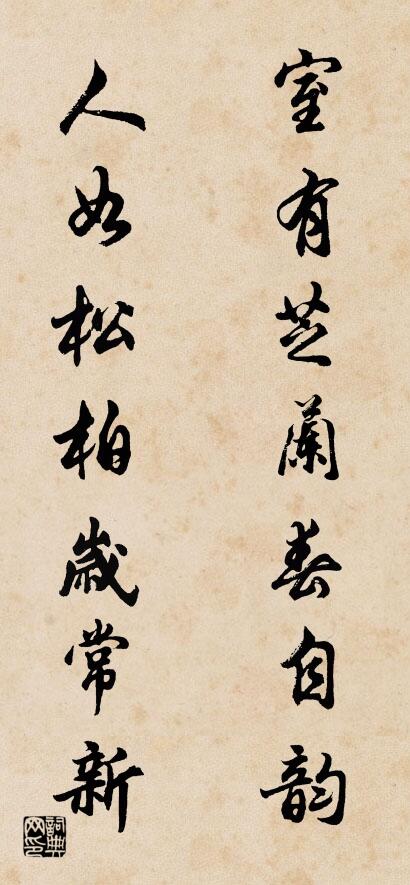 室有芝蘭春自韵
人如松柏歲常新
詞典網印